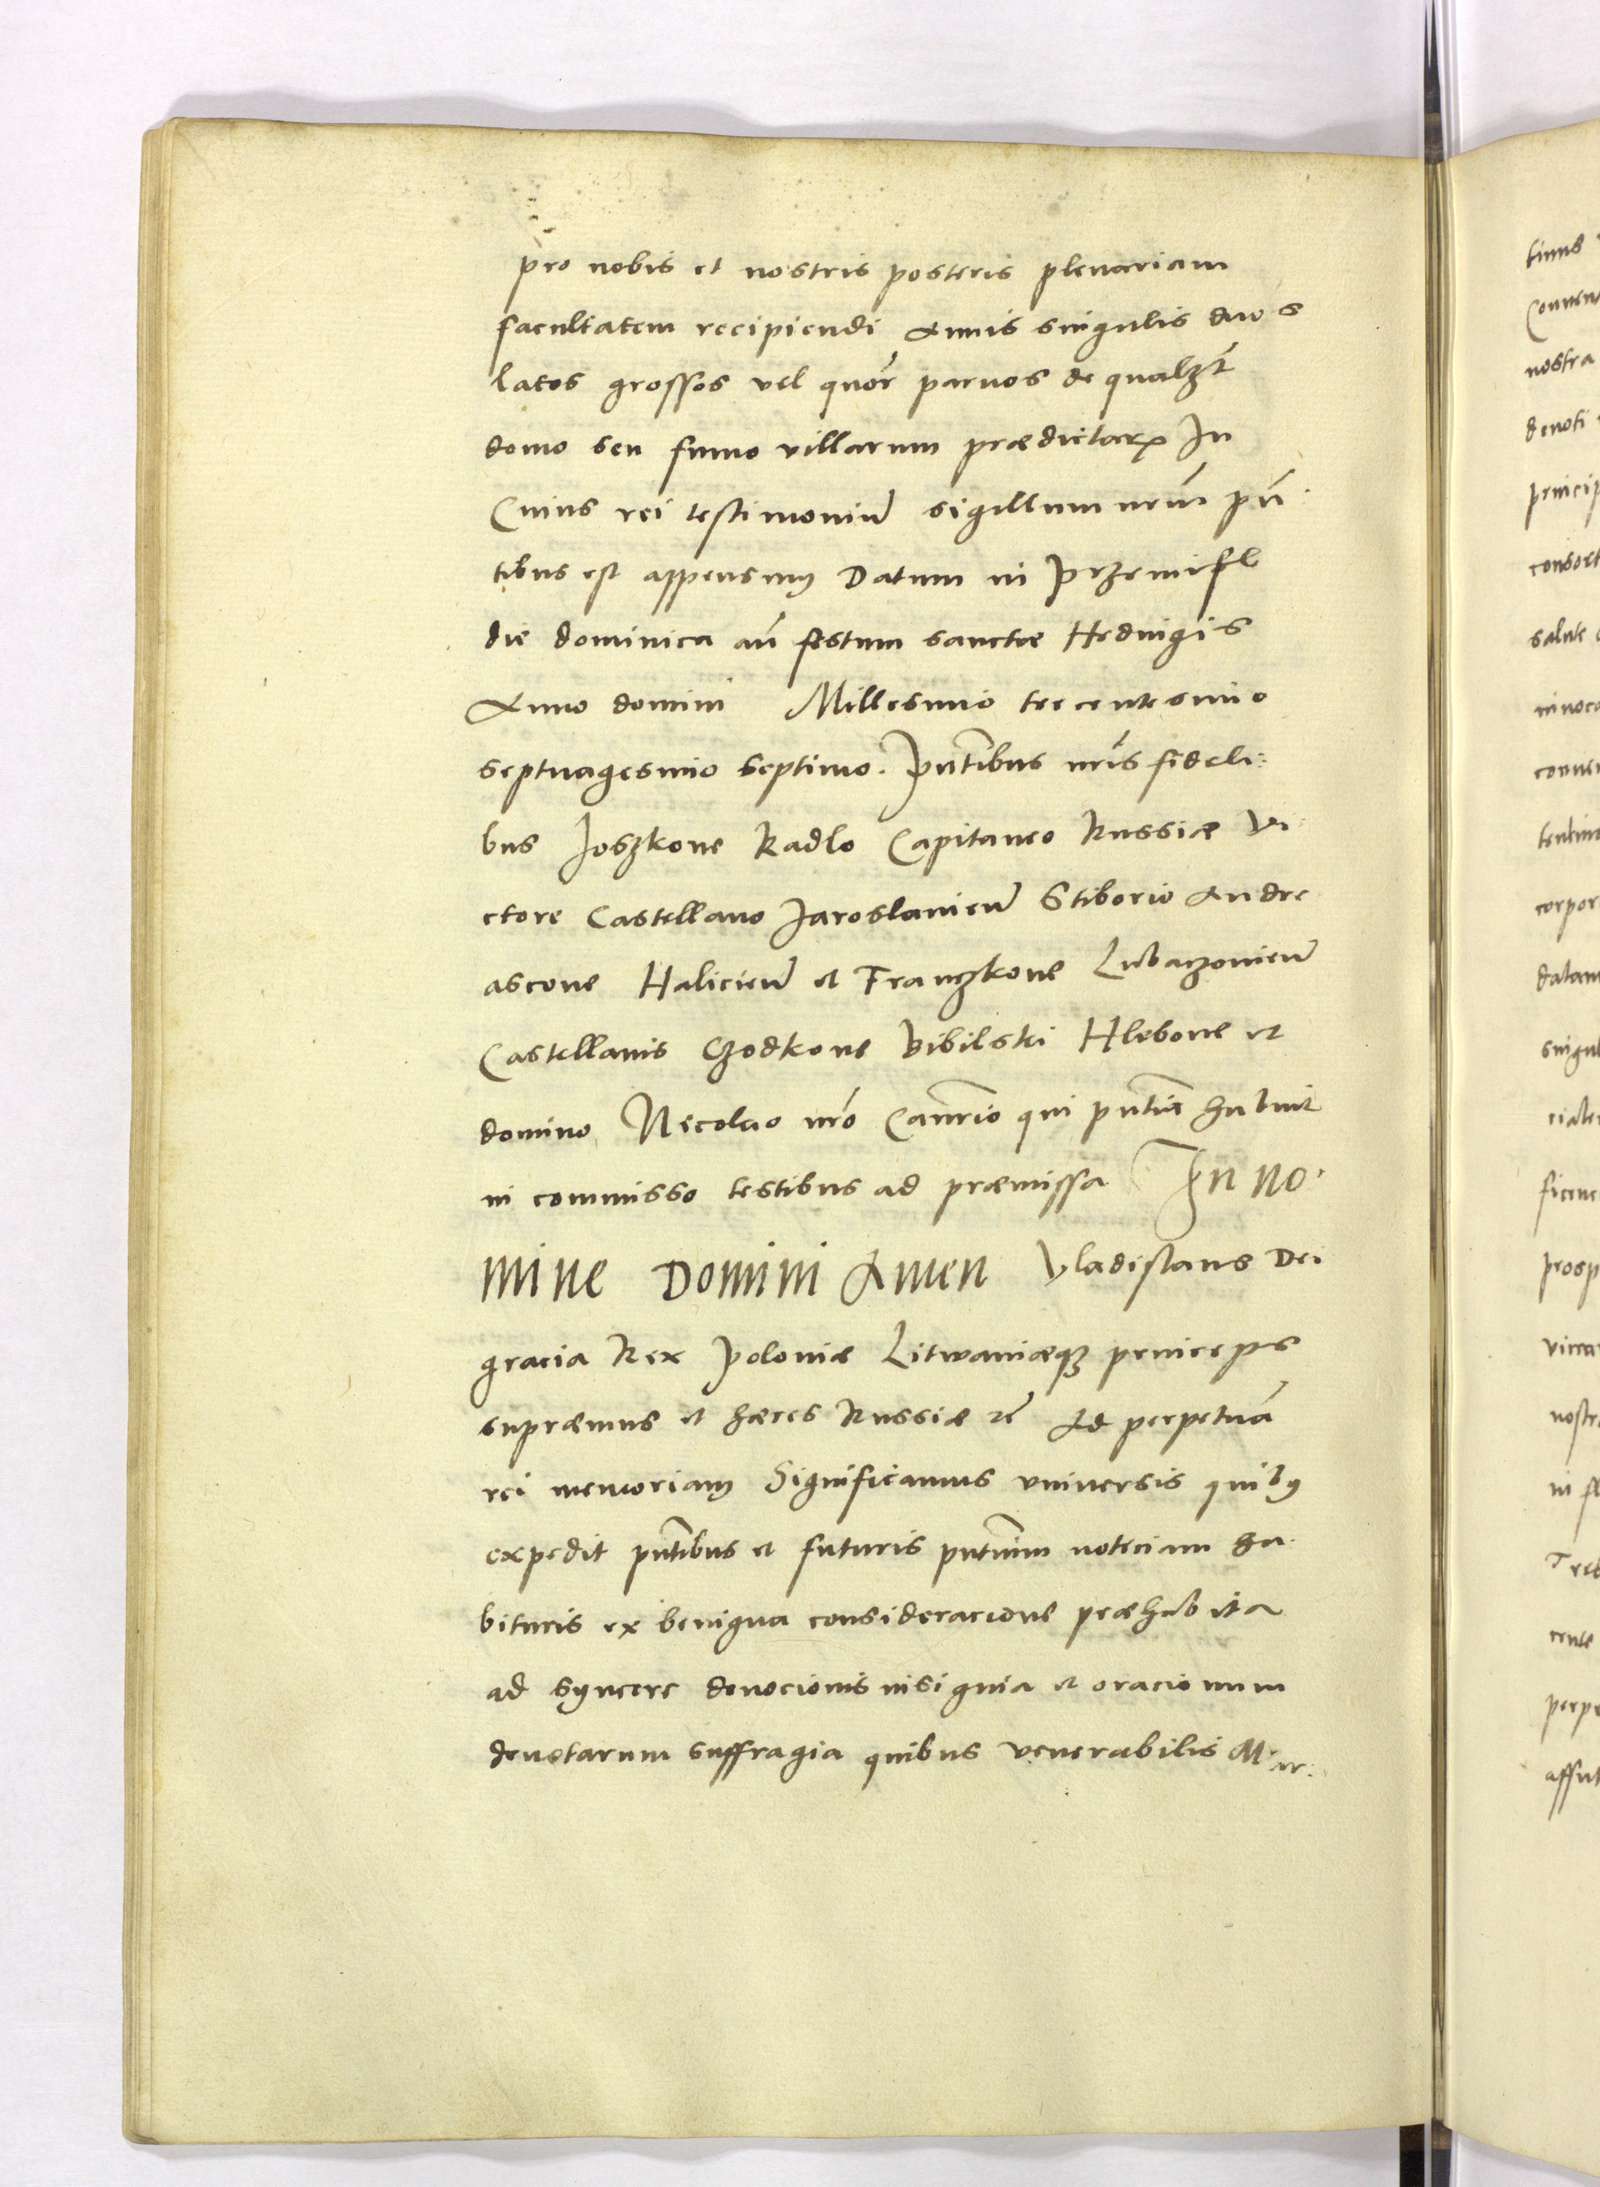 pro nobis et nostris posteris plenariam
facultatem recipiendi Annis singulis duos
latos grossos vel quor̄ paruos de qualꝫt
domo seu fumo villarum prædictarꝝ In
Cuius rei testimoniū sigillum nrūm pn̄
tibus est appensumꝫ Datum in Przemisl
die dominica an̄ festum sanctæ Heduigis
Anno domini Millesimo trecentesimo
septuagesimo septimo. Pn̄tibus nrīs fideli:
bus Joszkone Radlo Capitaneo Russiæ Vi
ctore Castellano Jaroslauien̄ Stiborio Andre
ascone Halicien̄ et Franczkone Lubaczouien̄
Castellanis Chodkone Bibilski Hlebone et
domino Nicolao nrō Can̄rio qui pn̄tia habuit
in commisso testibus ad præmissa In no.
mine Domini Amen Vladislaus Dei
gracia Rex Poloniæ Litwaniæqꝫ princeps
supræmus et hæres Russiæ rē Ad perpetuā
rei memoriamꝫ Significamus vniuersis quibꝰ
expedit pn̄tibus et futuris pn̄tium noticiam ha.
bituris ex benigna consideracione præhabita
ad syncere deuocionis insignia et oracionum
deuotarum suffragia quibus venerabilis Mar:
tinus
nostra
deuoti
princip
consort
salute
inuoca
conuen
corpor
datam
singul
prosp
nostr
perpe